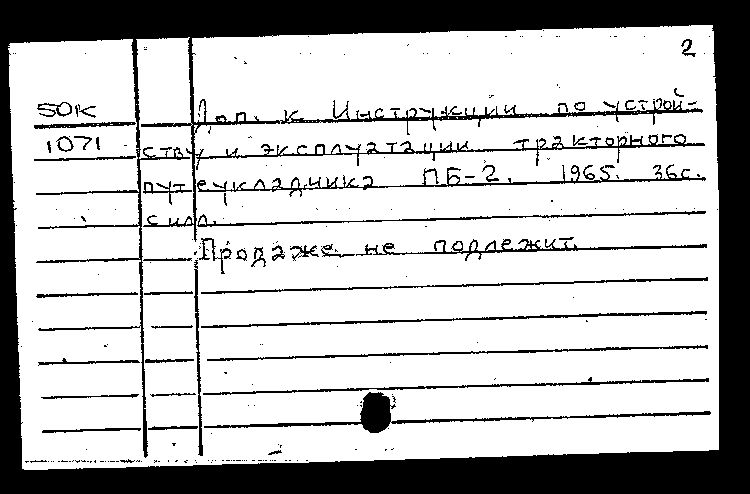 2
50К Доп. к Инструкции по устрой-
1071 ству и эксплуатации тракторного
путеукладчика ПБ-2. 1965. 36с.
с илл.
Продаже не подлежит.